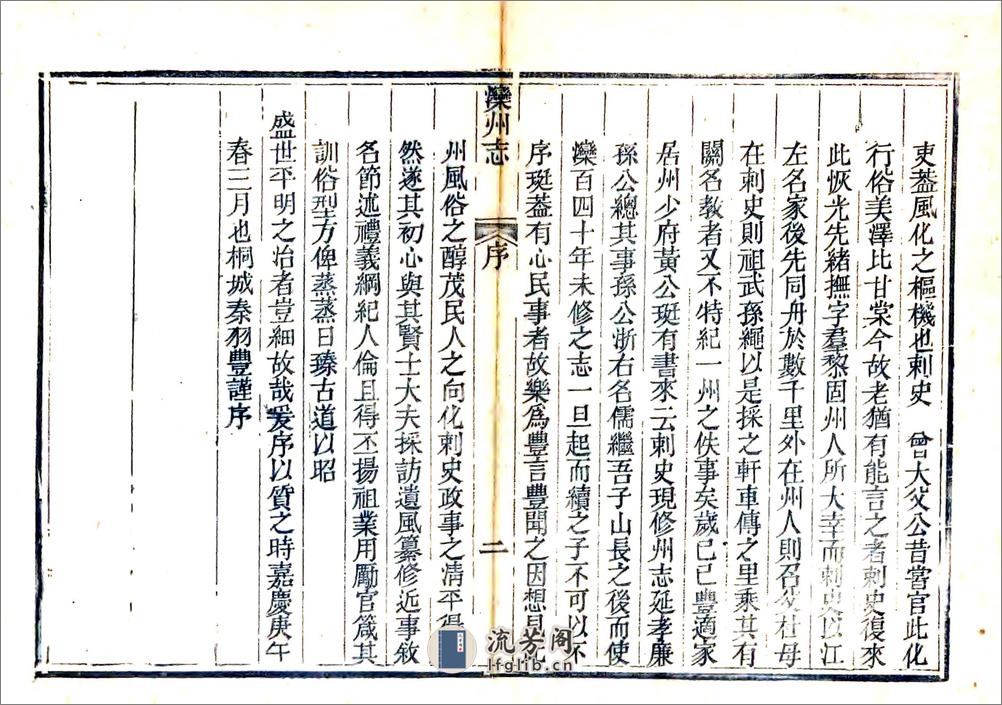 吏葢風化之樞機也刺史　曾大父公昔嘗官此化
行俗美澤比甘棠今故老猶有能言之者刺史復來
此恢光先緒撫字羣黎固州人所大幸而刺史以江
左名家後先同舟於數千里外在州人則召父杜母
在刺史則祖武孫繩以是採之軒車傳之里乘其有
關名教者又不特紀一州之佚事矣歲己巳豐適家
居州少府黃公珽有書來云刺史現修州志延孝廉
孫公總其事孫公浙右名儒繼吾子山長之後而使
灤百四十年未修之志一旦起而續之子不可以不
序珽葢有心民事者故樂爲豐言豐聞之因想見
州風俗之醇茂民人之向化刺史政事之清平得
然遂其初心與其賢士大夫採訪遺風纂修近事敘
名節述禮義綱紀人倫且得丕揚祖業用勵官箴其
訓俗型方俾蒸蒸日臻古道以昭
盛世平明之治者豈細故哉爰序以質之時嘉慶庚午
春三月也桐城秦羽豐謹序
灤州志
序
二
流芳阁
lfglib.cn